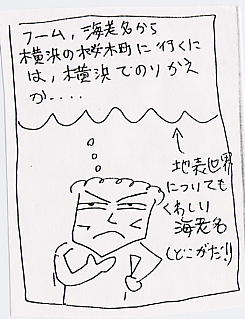 フーム，海老名から
横浜の桜木町に行くに
は，横浜でのりかえ
か‥‥
地表世界
についても
くわしい
海老名
(どこがだ!!)